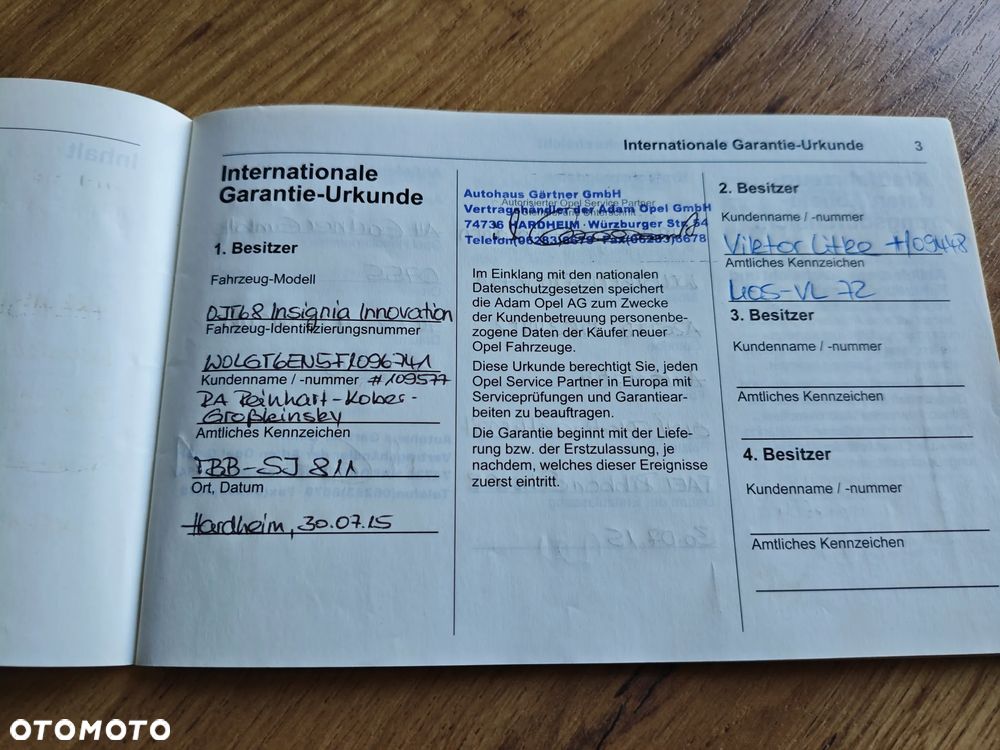 Internationale Garantie-Urkunde 3
Internationale
Garantie-Urkunde
1. Besitzer
Fahrzeug-Modell
Insignia Innovation
Fahrzeug-Identifizierungsnummer
W0LGT6EN5F1096741
Kundenname / -nummer #109577
RA Reinhart-Kober-
Amtliches Kennzeichen
TBB-SJ 811
Ort, Datum
Hardheim, 30.07.15
Autohaus Gärtner GmbH
Autorisierter Opel Service Partner
Vertragshändler der Adam Opel GmbH
74736 HARDHEIM · Würzburger Str. 64
Telefon (06283) 8679 · Fax (06283) 8678
Im Einklang mit den nationalen
Datenschutzgesetzen speichert
die Adam Opel AG zum Zwecke
der Kundenbetreuung personenbe-
zogene Daten der Käufer neuer
Opel Fahrzeuge.
Diese Urkunde berechtigt Sie, jeden
Opel Service Partner in Europa mit
Serviceprüfungen und Garantiear-
beiten zu beauftragen.
Die Garantie beginnt mit der Liefe-
rung bzw. der Erstzulassung, je
nachdem, welches dieser Ereignisse
zuerst eintritt.
2. Besitzer
Kundenname / -nummer
Viktor Litke
Amtliches Kennzeichen
MOS-VL 72
3. Besitzer
Kundenname / -nummer
Amtliches Kennzeichen
4. Besitzer
Kundenname / -nummer
Amtliches Kennzeichen
OTOMOTO